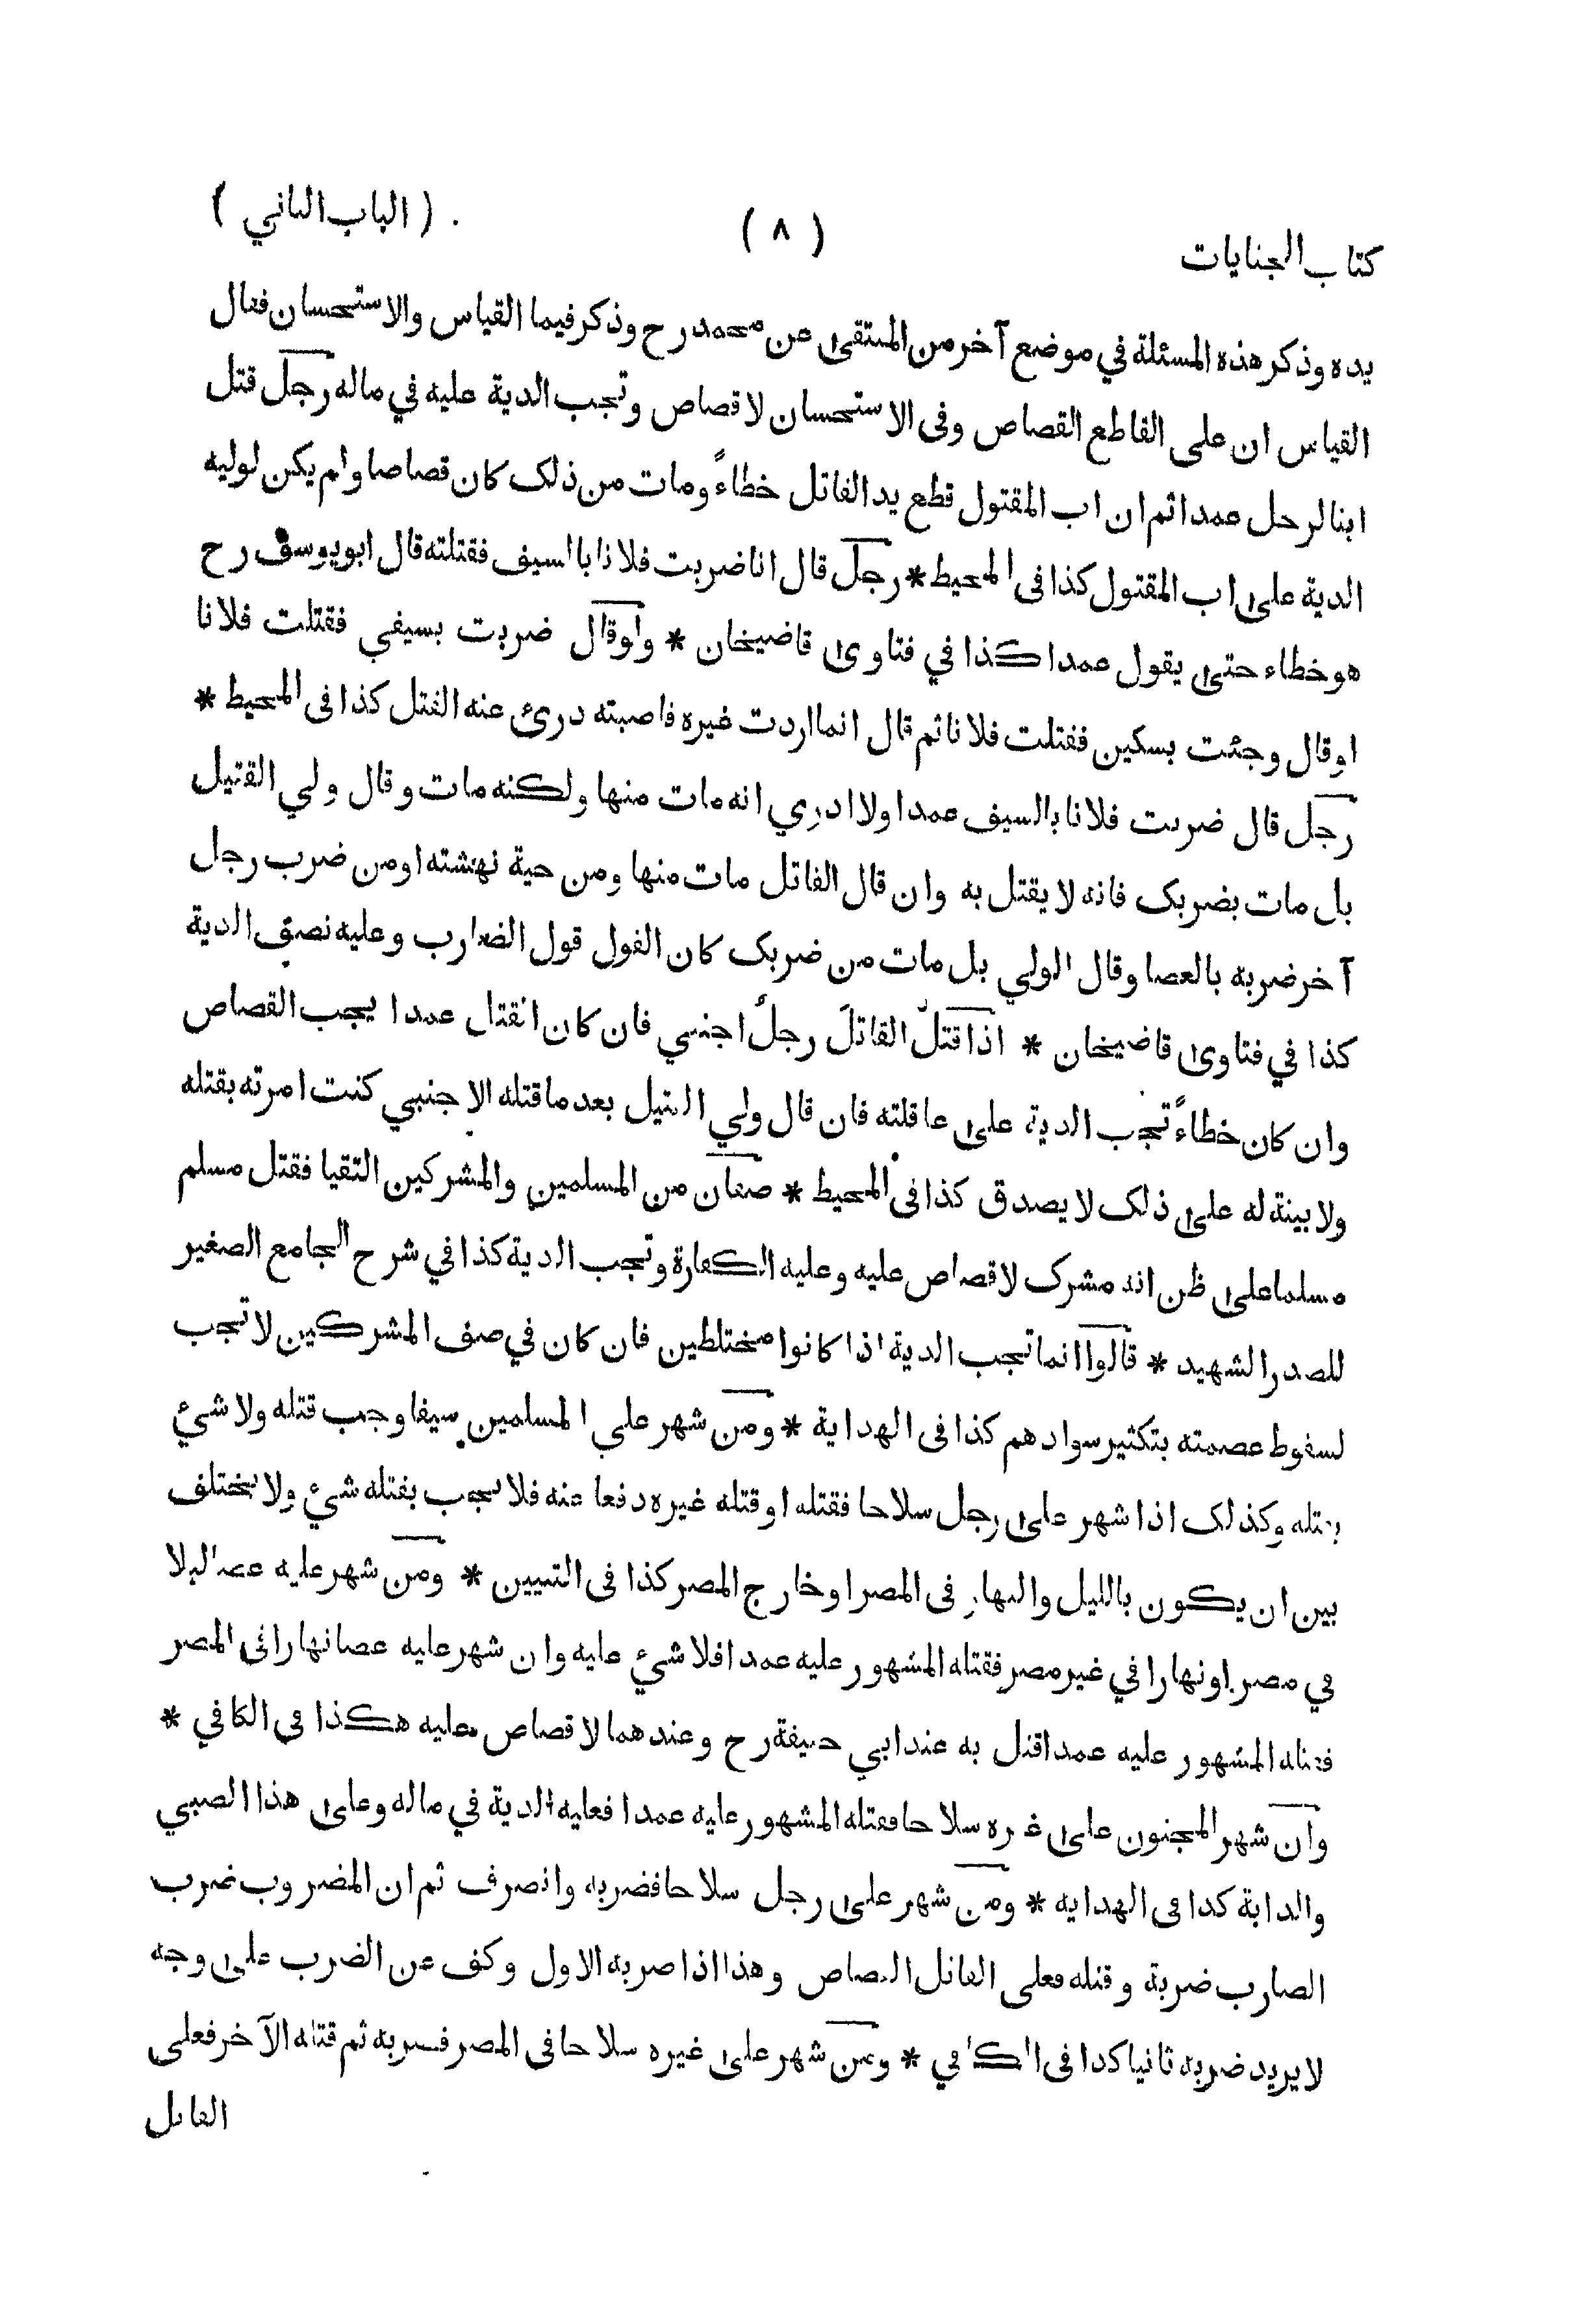 كتاب الجنايات ( ٨ ) ( الباب الثاني )
يده وذكر هذه المسئلة في موضع آخر من المنتقى عن محمد رح وذكر فيها القياس والاستحسان فقال
القياس ان على القاطع القصاص وفى الاستحسان لا قصاص وتجب الدية عليه في ماله رجل قتل
ابنا لرجل عمدا ثم ان اب المقتول قطع يد القاتل خطاءً ومات من ذلك كان قصاصا ولم يكن لوليه
الدية على اب المقتول كذا فى المحيط * رجل قال انا ضربت فلانا بالسيف فقتلته قال ابويوسف رح
هو خطاء حتى يقول عمدا كذا في فتاوى قاضيخان * ولوقال ضربت بسيفي فقتلت فلانا
اوقال وجئت بسكين فقتلت فلانا ثم قال انما اردت غيره فاصبته درئ عنه القتل كذا فى المحيط *
رجل قال ضربت فلانا بالسيف عمدا ولا ادري انه مات منها ولكنه مات وقال ولي القتيل
بل مات بضربك فانه لا يقتل به وان قال القاتل مات منها ومن حية نهشته اومن ضرب رجل
آخر ضربه بالعصا وقال الولي بل مات من ضربك كان القول قول الضارب وعليه نصف الدية
كذا في فتاوى قاضيخان * اذا قتل القاتلَ رجلٌ اجنبي فان كان القتل عمدا يجب القصاص
وان كان خطاءً تجب الدية على عاقلته فان قال ولي القتيل بعد ما قتله الاجنبي كنت امرته بقتله
ولا بينة له على ذلك لا يصدق كذا فى المحيط * صفان من المسلمين والمشركين التقيا فقتل مسلم
مسلما على ظن انه مشرك لا قصاص عليه وعليه الكفارة وتجب الدية كذا في شرح الجامع الصغير
للصدر الشهيد * قالوا انما تجب الدية اذا كانوا مختلطين فان كان في صف المشركين لا تجب
لسقوط عصمته بتكثير سوادهم كذا فى الهداية * ومن شهر على المسلمين سيفا وجب قتله ولا شيء
بقتله وكذلك اذا شهر على رجل سلاحا فقتله اوقتله غيره دفعا عنه فلا يجب بقتله شيء ولا يختلف
بين ان يكون بالليل والنهار فى المصر اوخارج المصر كذا فى التبيين * ومن شهر عليه عصا ليلا
في مصر اونهارا في غير مصر فقتله المشهور عليه عمدا فلا شيء عليه وان شهر عليه عصا نهارا فى المصر
فقتله المشهور عليه عمدا قتل به عند ابي حنيفة رح وعندهما لا قصاص عليه هكذا فى الكافي *
وان شهر المجنون على غيره سلاحا فقتله المشهور عليه عمدا فعليه الدية في ماله وعلى هذا الصبي
والدابة كذا فى الهدايه * ومن شهر على رجل سلاحا فضربه وانصرف ثم ان المضروب ضرب
الضارب ضربة وقتله فعلى القاتل القصاص وهذا اذا ضربه الاول وكف عن الضرب على وجه
لا يريد ضربه ثانيا كذا فى الكافي * ومن شهر على غيره سلاحا فى المصر فضربه ثم قتله الآخر فعلى
القاتل